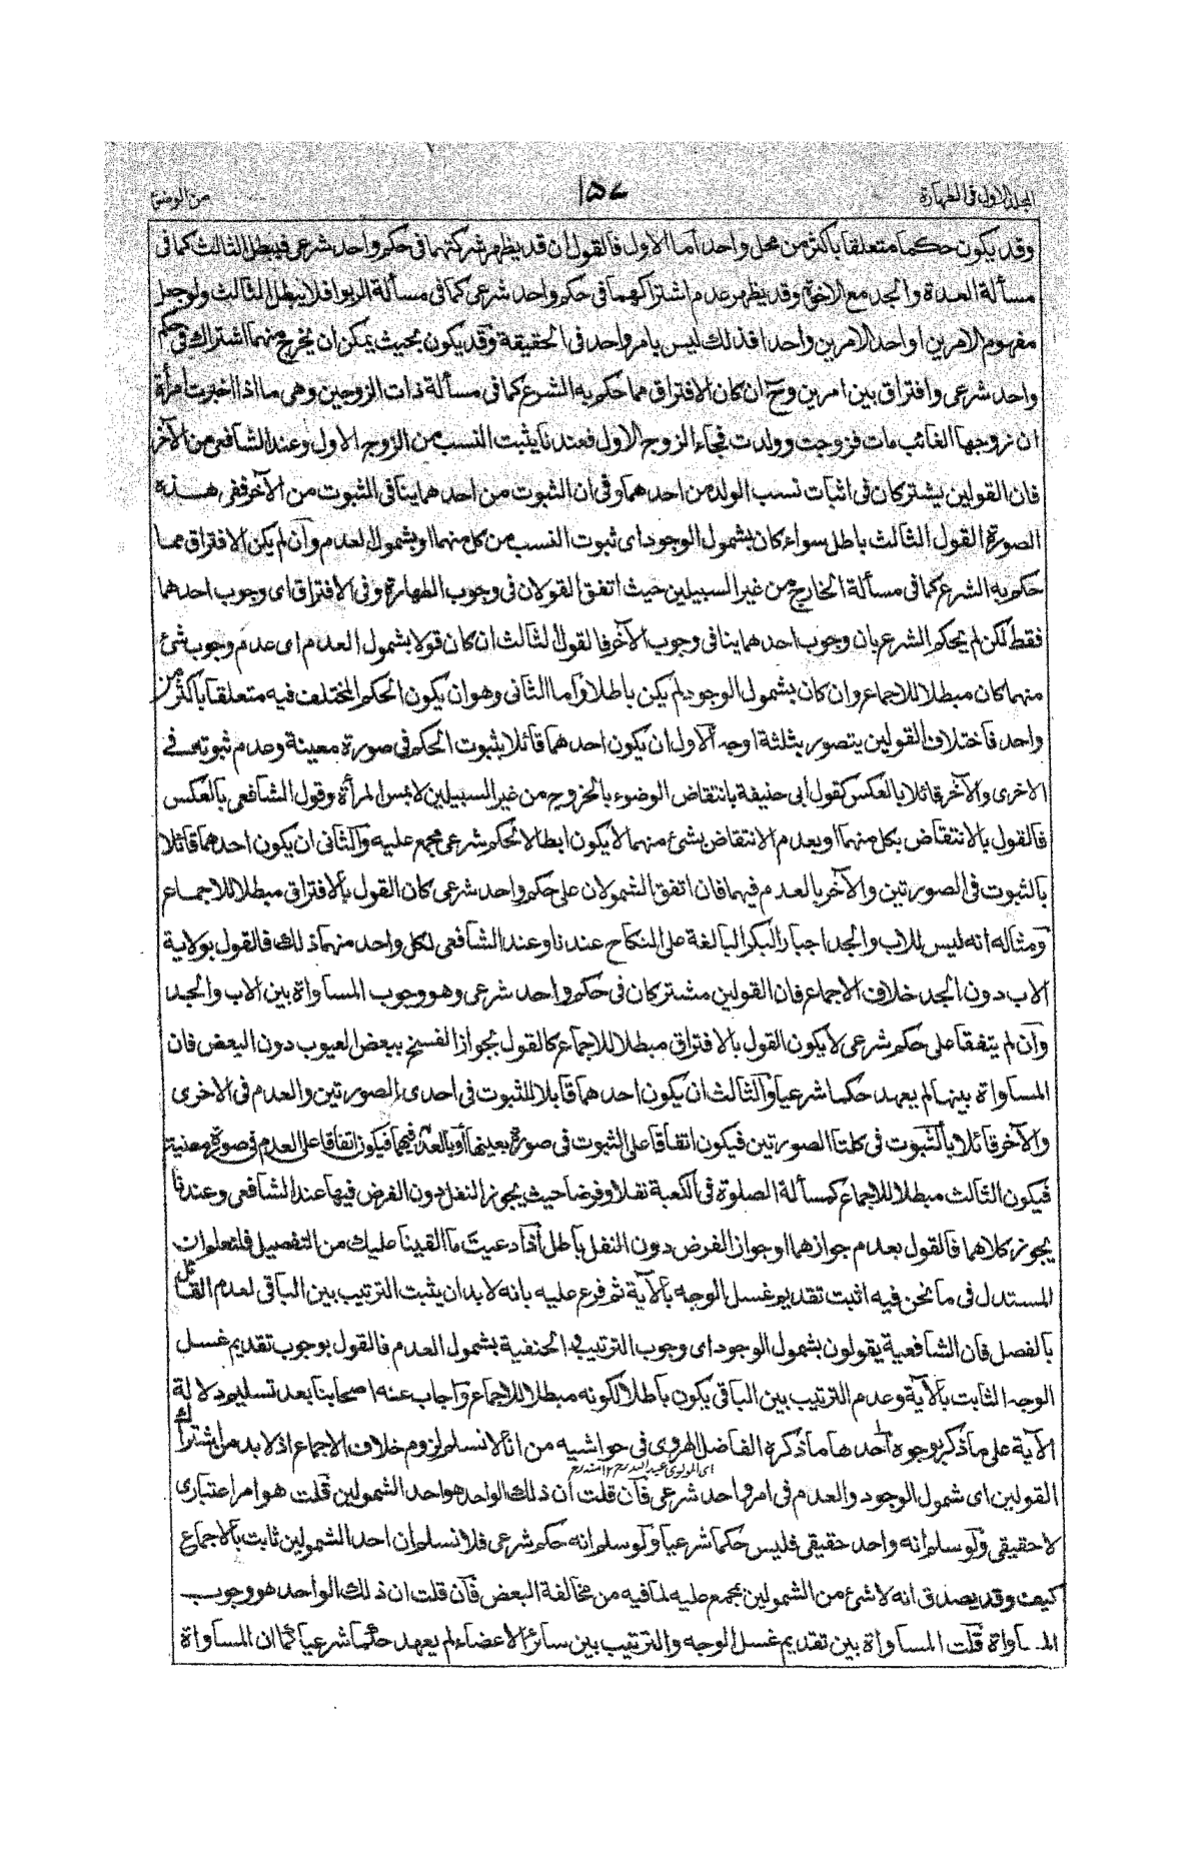 المجلد الاول فى الطهارة
١٥٧
من الوضوء
وقد يكون حكما متعلقا باكثر من محل واحد اما الاول فالقول ان قد يظهر شركتهما فى حكم واحد شرعى فيبطل الثالث كما فى
مسألة العدة والجد مع الاخوة وقد يظهر عدم اشتراكهما فى حكم واحد شرعى كما فى مسألة الربوا فلا يبطل الثالث ولو جعل
مفهوم الامرين او احد الامرين واحدا فذلك ليس بامر واحد فى الحقيقة وقد يكون بحيث يمكن ان يخرج منهما اشتراك فى حكم
واحد شرعى وافتراق بين امرين وح ان كان الافتراق مما حكم به الشرع كما فى مسألة ذات الزوجين وهى ما اذا اخبرت امرأة
ان زوجها الغائب مات فزوجت وولدت فجاء الزوج الاول فعندنا يثبت النسب من الزوج الاول وعند الشافعى من الآخر
فان القولين يشتركان فى اثبات نسب الولد من احدهما وفى ان الثبوت من احدهما ينافى الثبوت من الآخر ففى هذه
الصورة القول الثالث باطل سواء كان بشمول الوجود اى ثبوت النسب من كل منهما او بشمول العدم وان لم يكن الافتراق مما
حكم به الشرع كما فى مسألة الخارج من غير السبيلين حيث اتفق القولان فى وجوب الطهارة وفى الافتراق اى وجوب احدهما
فقط لكن لم يحكم الشرع بان وجوب احدهما ينافى وجوب الآخر فالقول الثالث ان كان قولا بشمول العدم اى عدم وجوب شئ
منهما كان مبطلا للاجماع وان كان بشمول الوجود لم يكن باطلا واما الثانى وهو ان يكون الحكم المختلف فيه متعلقا باكثر من
واحد فاختلاف القولين يتصور بثلثة اوجه الاول ان يكون احدهما قائلا بثبوت الحكم فى صورة معينة وعدم ثبوته فى
الاخرى والآخر قائلا بالعكس كقول ابى حنيفة بانتقاض الوضوء بالخروج من غير السبيلين لا بمس المرأة وقول الشافعى بالعكس
فالقول بالانتقاض بكل منهما او بعدم الانتقاض بشئ منهما لا يكون ابطالا لحكم شرعى مجمع عليه والثانى ان يكون احدهما قائلا
بالثبوت فى الصورتين والآخر بالعدم فيهما فان اتفق الشمولان على حكم واحد شرعى كان القول بالافتراق مبطلا للاجماع
ومثاله انه ليس للاب والجد اجبار البكر البالغة على النكاح عندنا وعند الشافعى لكل واحد منهما ذلك فالقول بولاية
الاب دون الجد خلاف الاجماع فان القولين مشتركان فى حكم واحد شرعى وهو وجوب المساواة بين الاب والجد
وان لم يتفقا على حكم شرعى لا يكون القول بالافتراق مبطلا للاجماع كالقول بجواز الفسخ ببعض العيوب دون البعض فان
المساواة بينهما لم يعهد حكما شرعيا والثالث ان يكون احدهما قابلا للثبوت فى احدى الصورتين والعدم فى الاخرى
والآخر قائلا بالثبوت فى كلتا الصورتين فيكون اتفاقا على الثبوت فى صورة بعينها او بالعدم فيهما فيكون اتفاقا على العدم فى صورة معينة
فيكون الثالث مبطلا للاجماع كمسألة الصلوة فى الكعبة نفلا وفرضا حيث يجوز النفل دون الفرض فيها عند الشافعى وعندنا
يجوز كلاهما فالقول بعدم جوازهما او جواز الفرض دون النفل باطل اذا دعيت ما القينا عليك من التفصيل فلتعلم ان
المستدل فى ما نحن فيه اثبت تقديم غسل الوجه بالآية ثم فرع عليه بانه لا بد ان يثبت الترتيب بين الباقى لعدم القائل
بالفصل فان الشافعية يقولون بشمول الوجود اى وجوب الترتيب والحنفية بشمول العدم فالقول بوجوب تقديم غسل
الوجه الثابت بالآية وعدم الترتيب بين الباقى يكون باطلا لكونه مبطلا للاجماع واجاب عنه اصحابنا بعد تسليم دلالة
الآية على ما ذكر بوجوه احدها ما ذكره الفاضل الهروى فى حواشيه من انا لا نسلم لزوم خلاف الاجماع اذ لا بد من اشتراك
اى المولوى عبد الله رح ١٢ منه رح
القولين اى شمول الوجود والعدم فى امر واحد شرعى فان قلت ان ذلك الواحد هو احد الشمولين قلت هو امر اعتبارى
لا حقيقى ولو سلم انه واحد حقيقى فليس حكما شرعيا ولو سلم انه حكم شرعى فلا نسلم ان احد الشمولين ثابت بالاجماع
كيف وقد يصدق انه لا شئ من الشمولين بمجمع عليه لما فيه من مخالفة البعض فان قلت ان ذلك الواحد هو وجوب
المساواة قلت المساواة بين تقديم غسل الوجه والترتيب بين سائر الاعضاء لم يعهد حكما شرعيا كما ان المساواة